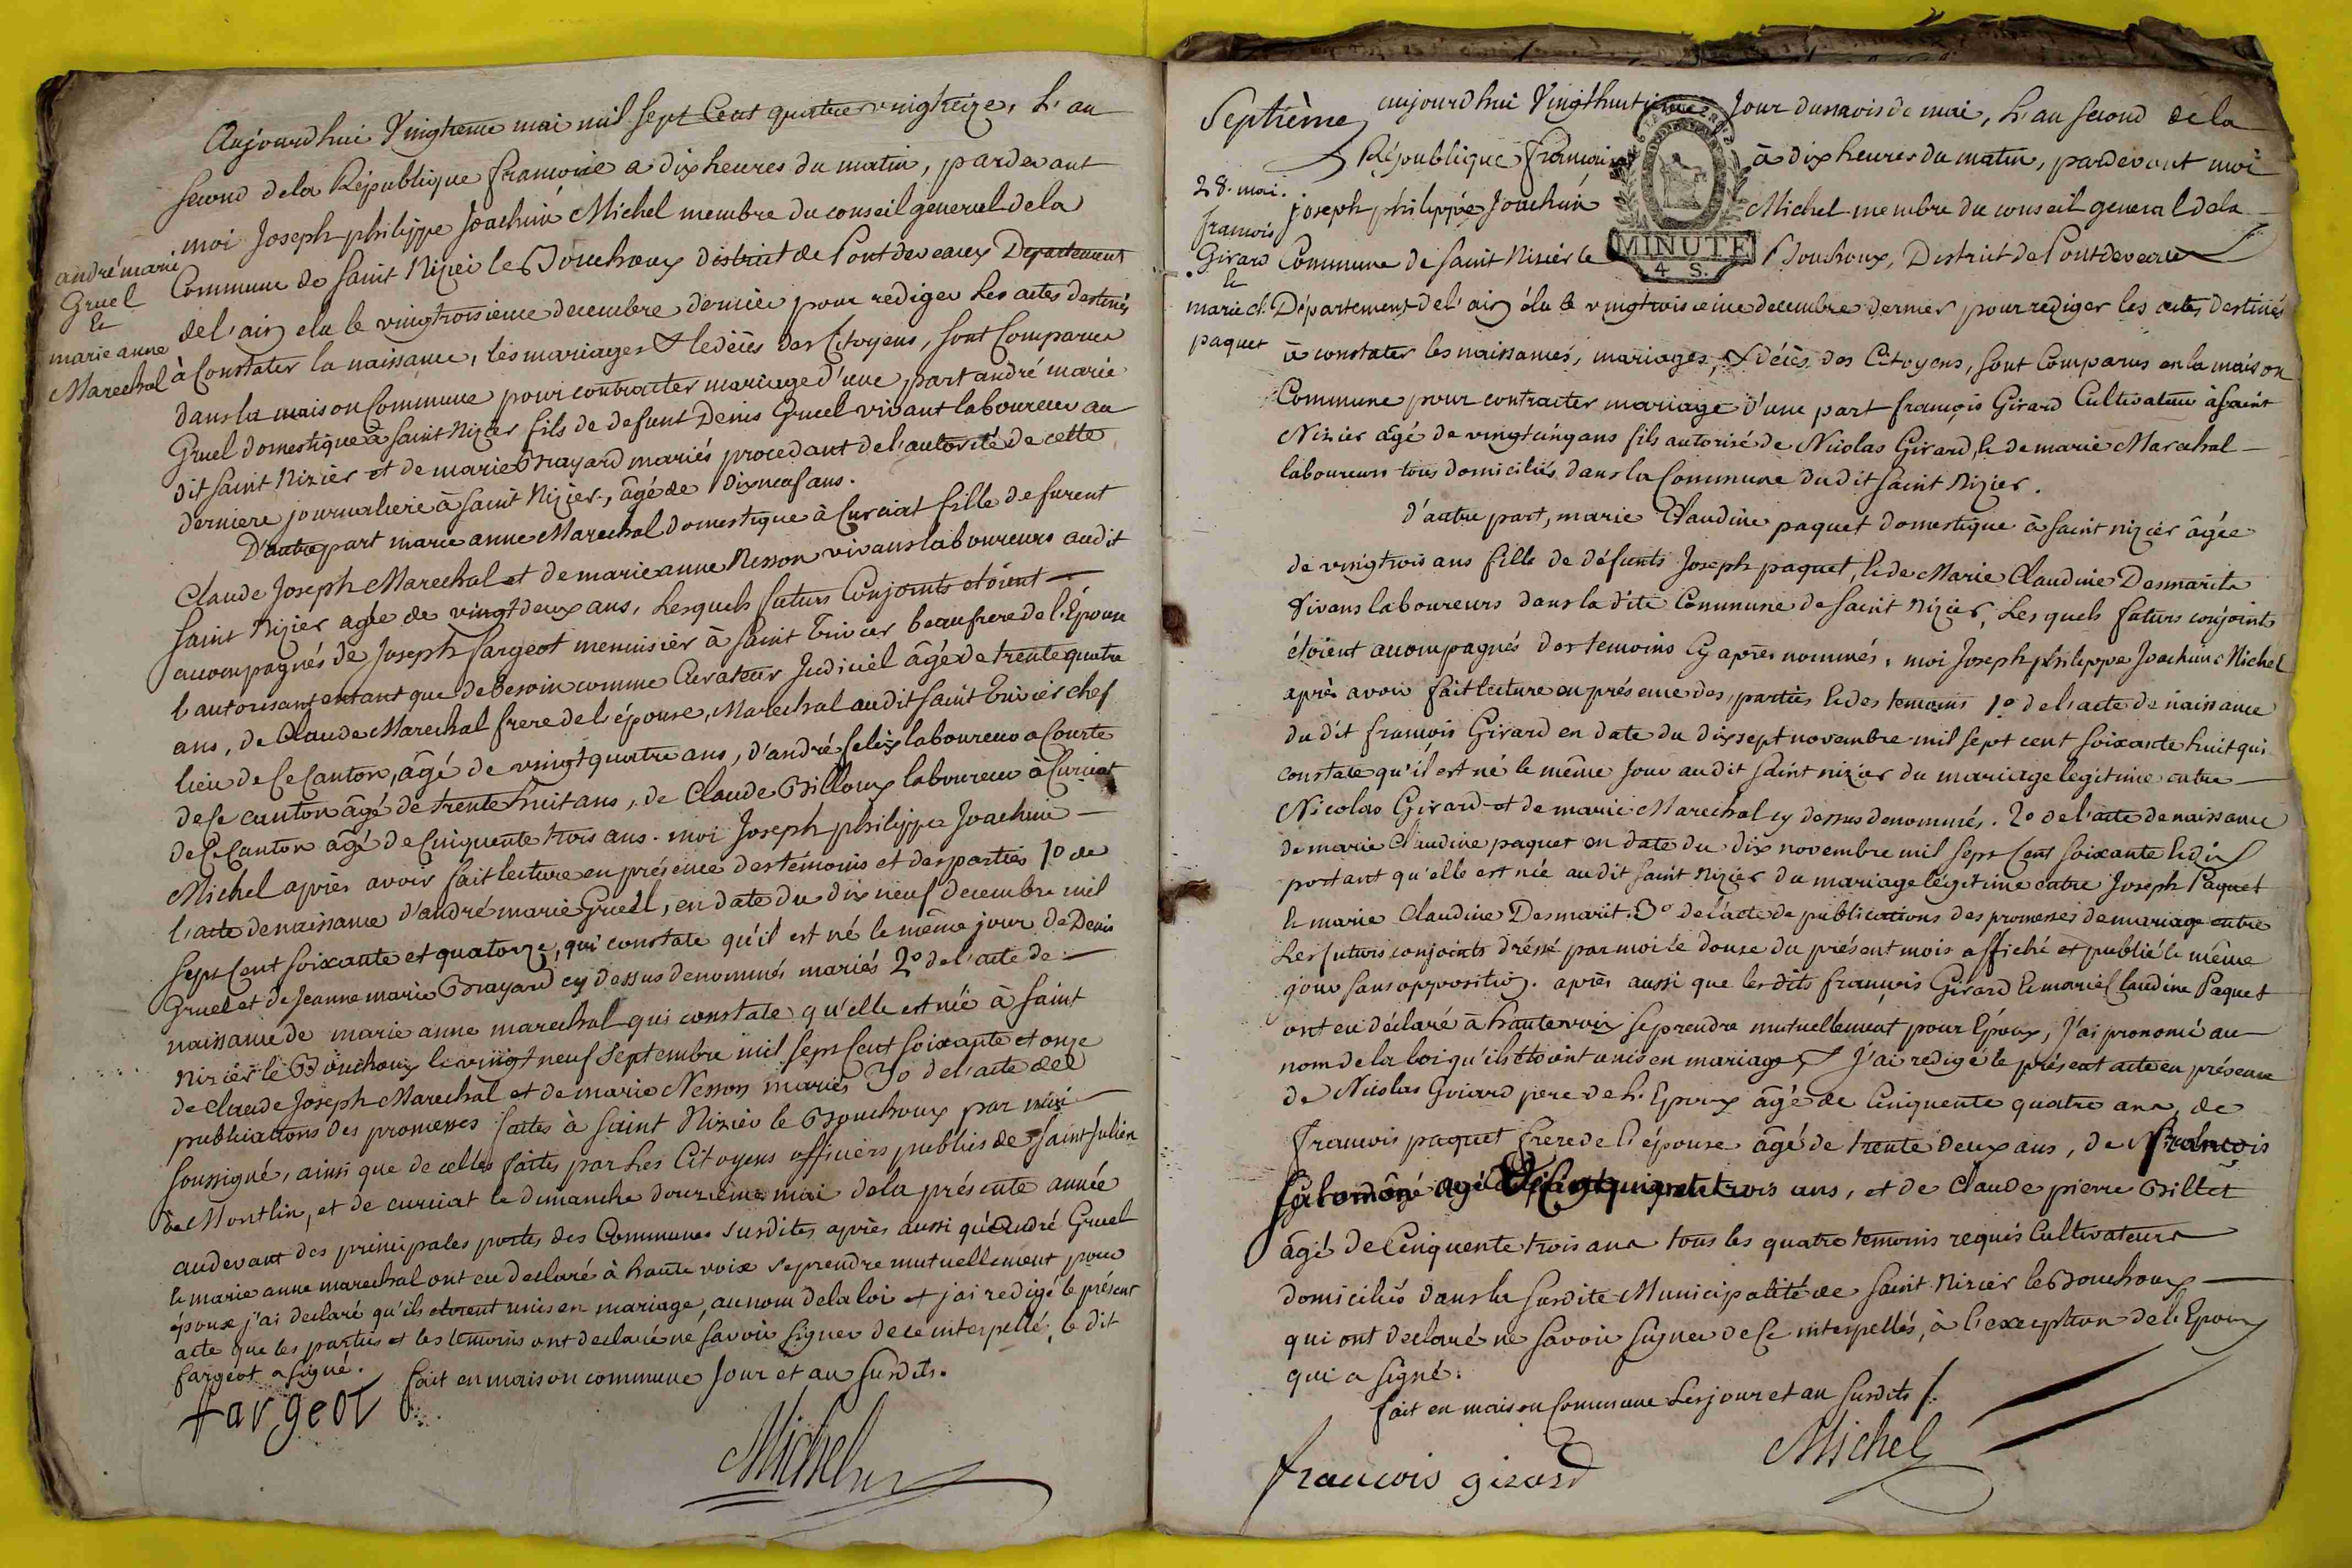 Aujourdhui Vingtieme mai mil sept Cent quatre vingtreize, L'an
second dela République francoise a dix heures du matin, pardevant
moi Joseph philippe Joachim Michel membre du conseil general dela
Commune de Saint Nizier le Bouchoux district de Pont deveaux Departement
andré marie
Gruel
&
marie anne
Marechal
del'ain elu le vingtroisieme decembre dernier pour rediger Les actes destinés
à Constater la naissance, les mariages & le décès des Citoyens, sont Comparus
dans la maison Commune pour contracter mariage d'une part andré marie
Gruel domestique à saint Nizier fils de defunt Denis Gruel vivant laboureur au
dit saint Nizier et de marie Brayard mariés procedant de l'autorité de cette
derniere journaliere à saint Nizier, âgé de dixneuf ans.
D'autre part marie anne Marechal domestique à Curciat fille de furent
Claude Joseph Marechal et de marie anne Nesson vivans laboureurs audit
saint Nizier agée de vingt deux ans, Lesquels futurs Conjoints étoient
accompagnés de Joseph fargeot menuisier à saint Trivier beaufrere de l'Épouse
l'autorisant entant que de besoin comme Curateur Judiciel âgé de trente quatre
ans, de Claude Marechal frere del'épouse, Marechal audit saint Trivier chef
lieu de Ce Canton, âgé de vingt quatre ans, d'andré felix laboureur a Courte
de ce canton âgé de trente huit ans, de Claude Billoux laboureur à Curciat
de Ce Canton âgé de Cinquente trois ans. moi Joseph philippe Joachim
Michel après avoir fait lecture en présence des témoins et des parties 1º de
l'acte denaissance d'andré marie Gruel, en date du dix neuf decembre mil
sept Cent soixante et quatorze, qui constate qu'il est né le même jour de Denis
Gruel et de Jeanne marie Brayard cy dessus denommés mariés 2º de l'acte de
naissance de marie anne marechal qui constate qu'elle est née à saint
Nizier le Bouchoux le vingt neuf septembre mil sept Cent soixante et onze
de claude Joseph Marechal et de marie Nesson mariés 3º de l'acte del
publications des promesses faites à saint Nizier le Bouchoux par moi
soussigné, ainsi que de celles faites par Les Citoyens officiers publics de saint Julien
de Montlin, et de curciat le dimanche douzieme mai dela présente année
audevant des principales portes des Communes susdites, après aussi qu'André Gruel
& marie anne marechal ont eu declaré à haute voix se prendre mutuellement pour
époux j'ai declaré qu'ils etoient unis en mariage, au nom dela loi et j'ai redigé le présent
acte que les parties et les témoins ont declaré ne savoir signer de ce interpellé, le dit
fargeot a signé. fait en maison commune Jour et an susdits.
fargeot
Michel
Septième aujourdhui Vingthuitieme Jour du mois de mai, L'an second de la
République francoise à dix heures du matin, pardevant moi
28. mai.
francois
Girard
&
marie cl.
paquet
MINUTE
4 S.
joseph philippe Joachim Michel membre du conseil general dela
Commune de saint Nizier le Bouchoux, District de Pontdeveaux
Département del'ain élu le vingtroisieme decembre dernier pour rediger les actes destinés
à constater les naissances, mariages, & décès des Citoyens, sont Comparus en la maison
Commune pour contracter mariage d'une part françois Girard Cultivateur à saint
Nizier âgé de vingt cinq ans fils autorisé de Nicolas Girard, & de marie Marechal
laboureurs tous domiciliés dans la Commune du dit saint Nizier.
d'autre part, marie Claudine paquet domestique à saint nizier âgée
de vingtrois ans fille de défunts Joseph paquet, & de Marie Claudine Desmarit
Vivans laboureurs dans la dite Commune de saint Nizier, Lesquels futurs conjoints
étoient accompagnés des temoins Cy après nommés, moi Joseph philippe Joachim Michel
après avoir fait lecture en présence des parties & des temoins 1º del'acte de naissance
du dit francois Girard en date du dixsept novembre mil sept cent soixante huit qui
constate qu'il est né le même Jour audit saint nizier du mariage legitime entre
Nicolas Girard et de marie Marechal cy dessus denommés. 2º de l'acte de naissance
de marie Claudine paquet en date du dix novembre mil sept Cent soixante & dix
portant qu'elle est née audit saint Nizier du mariage légitime entre Joseph Paquet
& marie Claudine Desmarit. 3º de l'acte de publications des promesses de mariage entre
Les futurs conjoints dréssé par moi le douze du présent mois affiché et publié le même
jour sans opposition. après aussi que les dits francois Girard & marie Claudine Paquet
ont eu déclaré à haute voix se prendre mutuellement pour Epoux, j'ai prononcé au
nom de la loi qu'ils étoient unis en mariage, & j'ai redigé le présent acte en présence
de Nicolas Girard pere de L'Epoux âgé de Cinquente quatre ans, de
francois paquet frere de l'épouse âgé de trente deux ans, de francois
salomon agé de Cinquente trois ans, et de Claude pierre Billet
âgé de Cinquente trois ans tous les quatre temoins requis Cultivateurs
domiciliés dans la susdite Municipalité de saint Nizier le Bouchoux
qui ont declaré ne savoir signer de Ce interpellés, à l'exception de l'Epoux
qui a signé.
fait en maison Commune Les jour et an susdits
francois girard
Michel